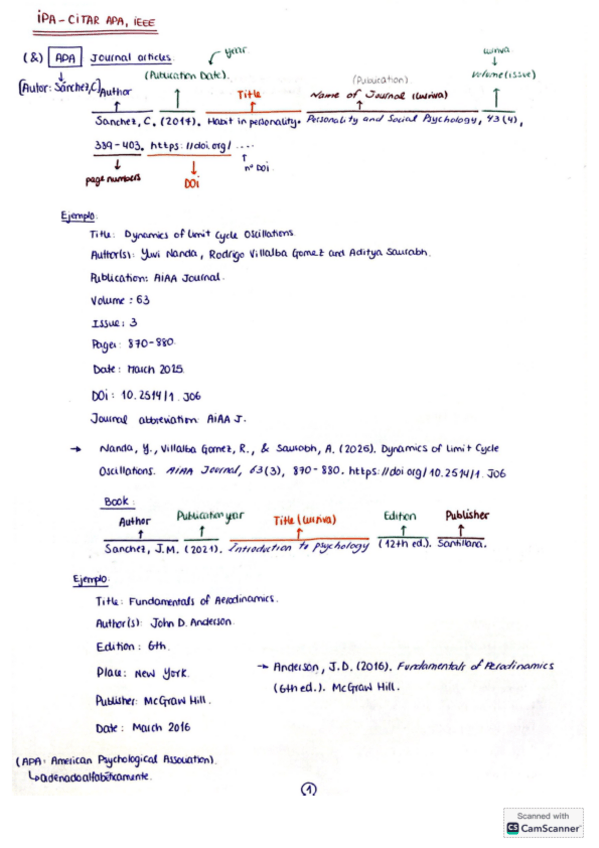 iPA - CITAR APA, iEEE
(&) APA Journal articles.
year
cursiva
(Autor: Sánchez, C) Author
(Publication Date).
Title
(Publication)
Name of Journal (cursiva)
Volume (issue)
Sanchez, C. (2017). Habit in personality. Personality and Social Psychology, 43(4),
339-403. https://doi.org/ ....
page numbers
DOi
nº DOi
Ejemplo:
Title: Dynamics of Limit Cycle Oscillations
Author(s): Yuvi Nanda, Rodrigo Villalba Gomez and Aditya Saurabh.
Publication: AiAA Journal.
Volume: 63
Issue: 3
Pages: 870-880.
Date: March 2025
DOi: 10.2514/1.J06
Journal abbreviation: AiAA J.
→ Nanda, Y., Villalba Gomez, R., & Saurabh, A. (2025). Dynamics of Limit Cycle
Oscillations. AiAA Journal, 63(3), 870-880. https://doi.org/10.2514/1.J06
Book:
Author
Publication year
Title (cursiva)
Edition
Publisher
Sanchez, J.M. (2021). Introduction to Psychology (12th ed.). Santillana.
Ejemplo:
Title: Fundamentals of Aerodinamics.
Author(s): John D. Anderson
Edition: 6th.
Place: New York.
→ Anderson, J.D. (2016). Fundamentals of Aerodinamics
(6th ed.). McGraw Hill.
Publisher: McGraw Hill.
Date: March 2016
(APA: American Psychological Association).
↳ ordenado alfabéticamente.
(1)
Scanned with
CS CamScanner